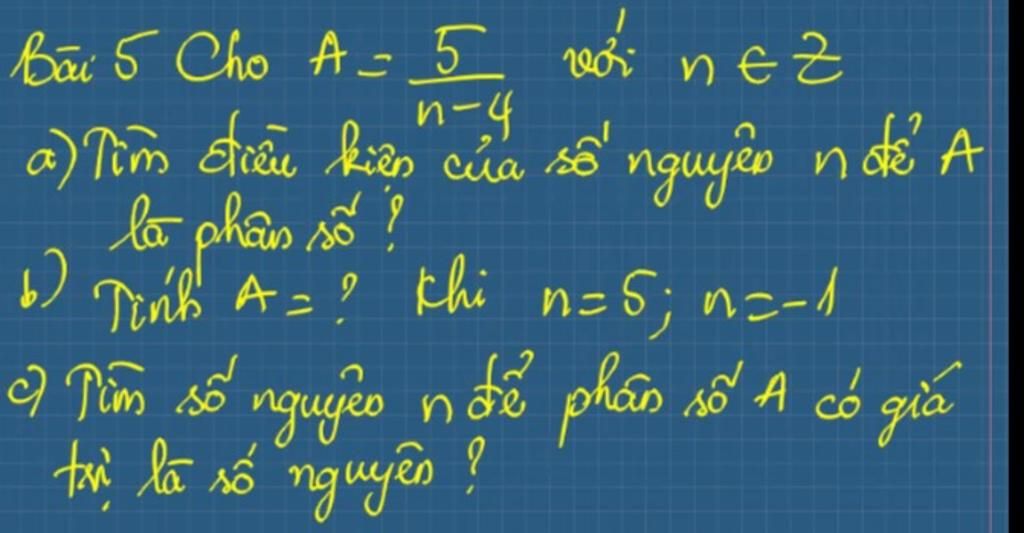 Bài 5 Cho A = 5/(n-4) với n ∈ Z
a) Tìm điều kiện của số nguyên n để A
là phân số?
b) Tính A = ? khi n = 5; n = -1
c) Tìm số nguyên n để phân số A có giá
trị là số nguyên?